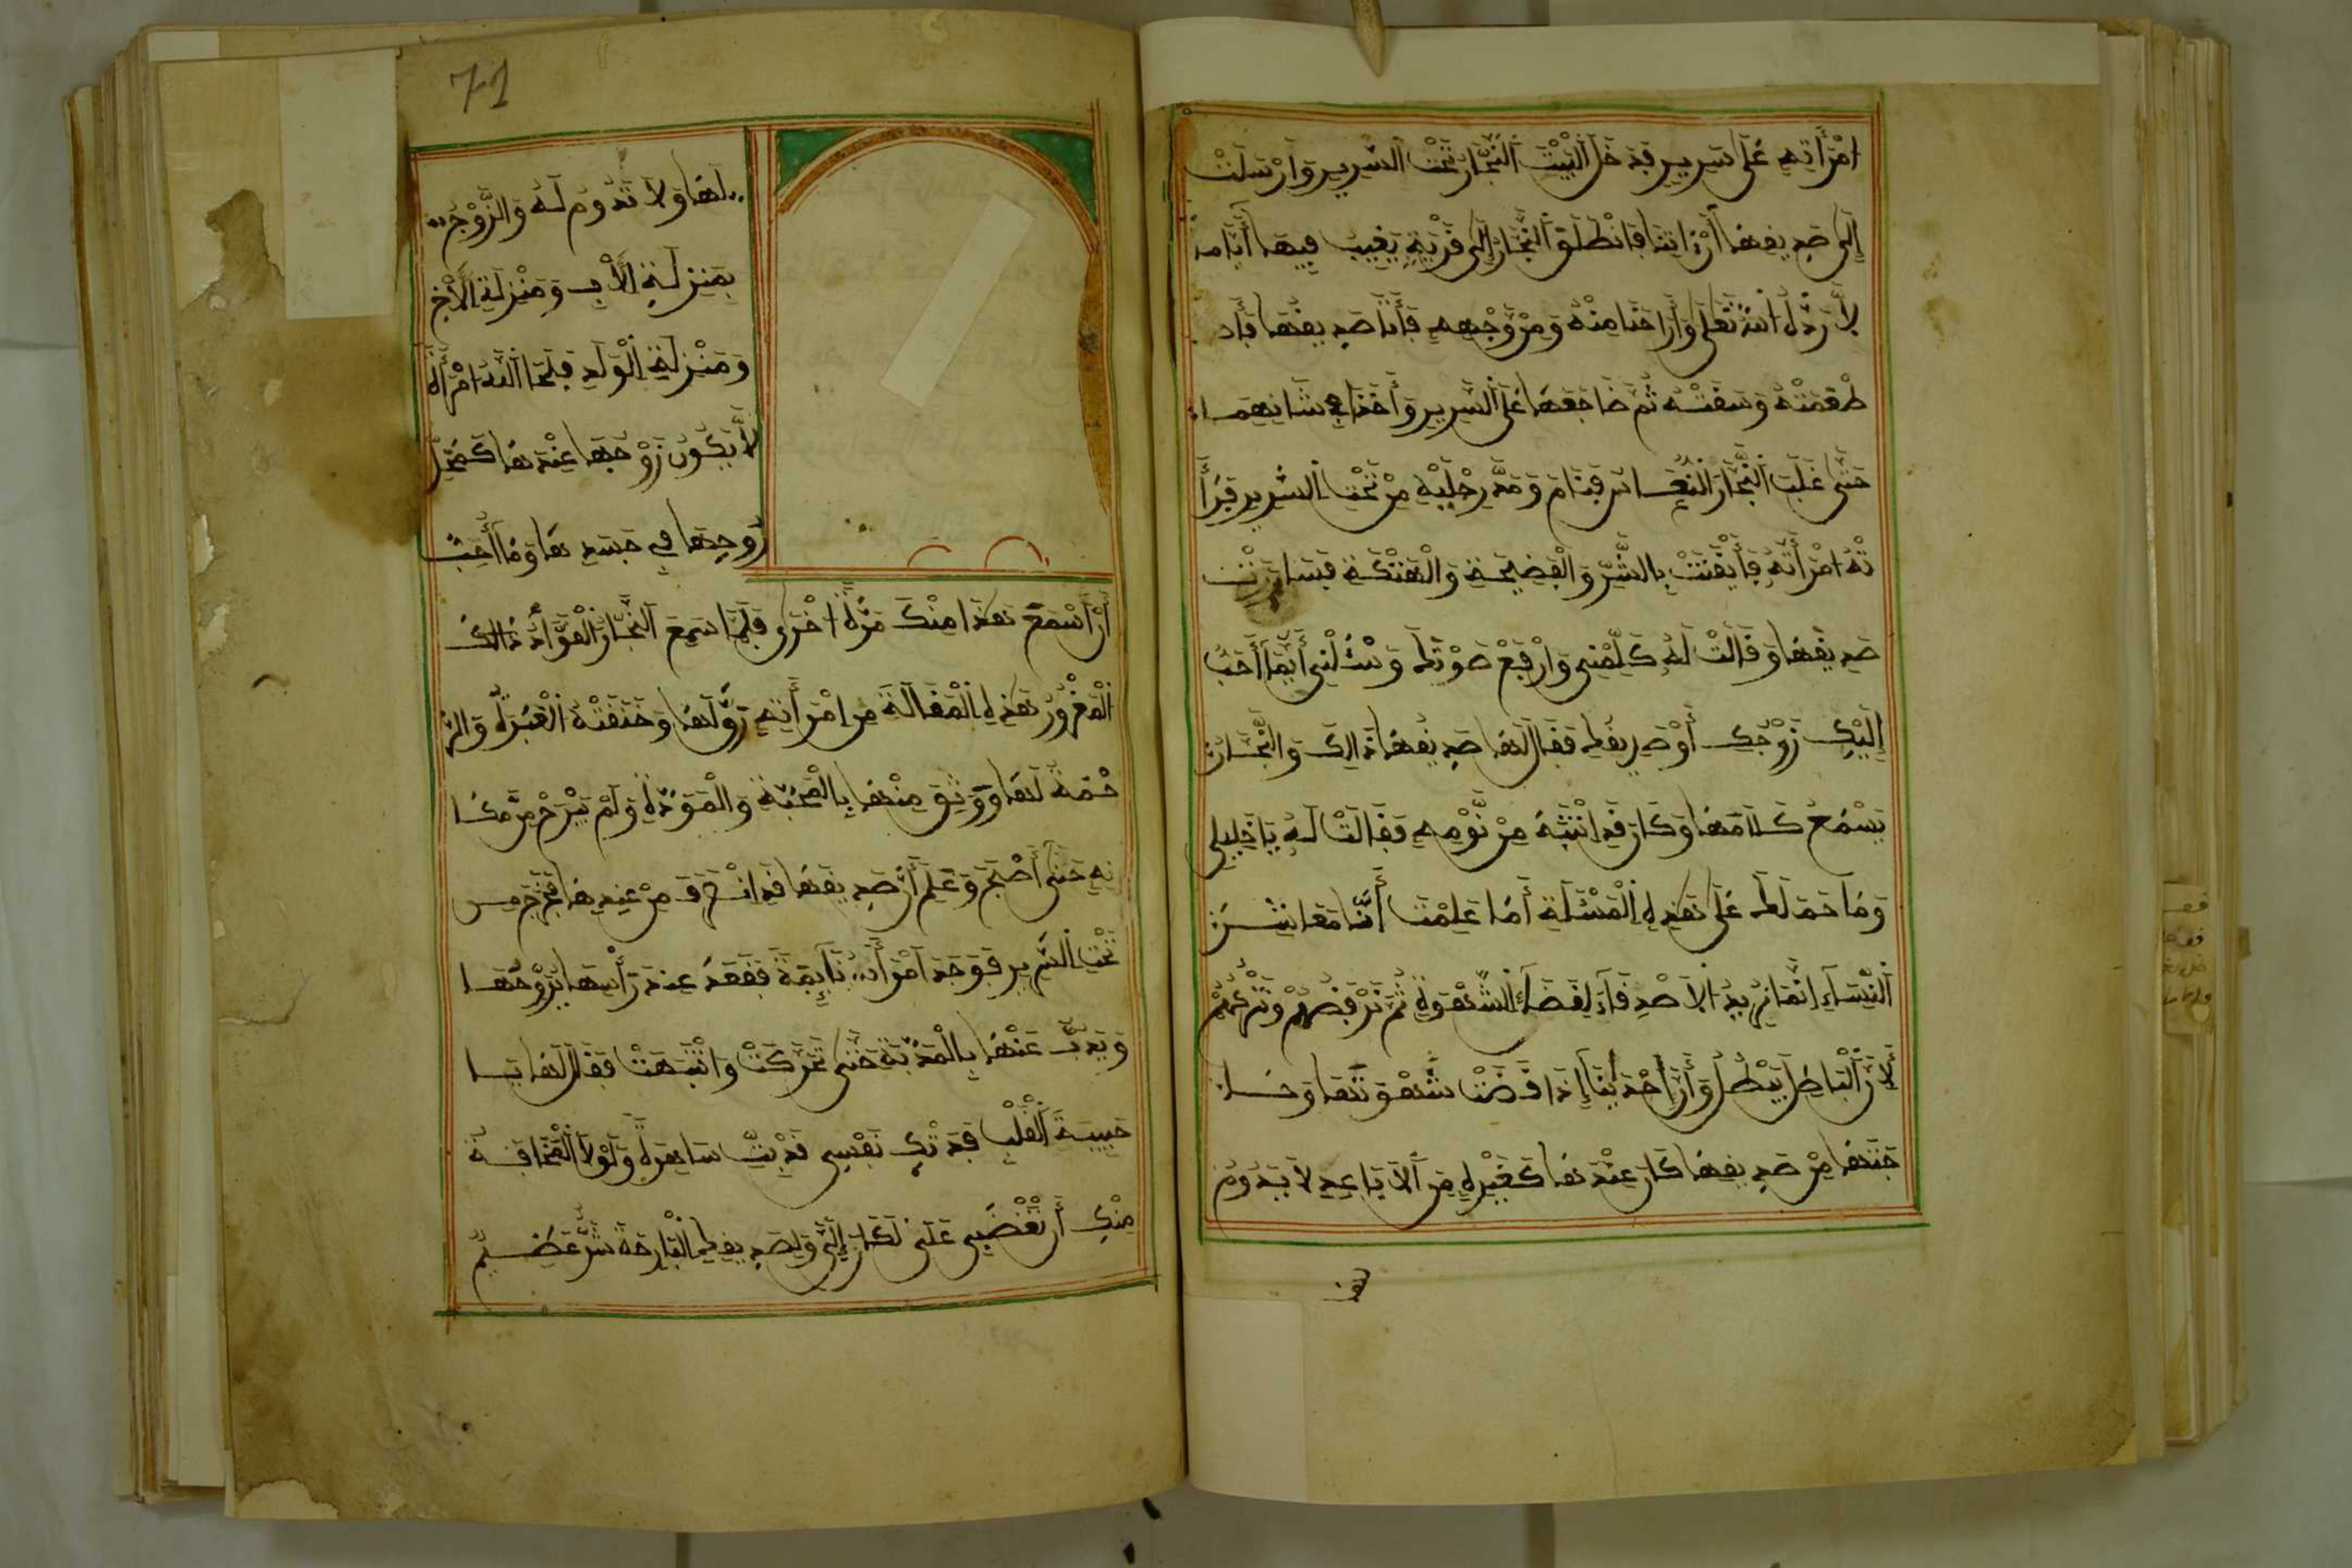 امْرَأَتِهِ عَلَى سَرِيرٍ فَدَخَلَ الْبَيْتَ النَّجَّارُ تَحْتَ السَّرِيرِ وَأَرْسَلَتْ
إِلَى صَدِيقِهَا أَنِ ائْتِنَا فَانْطَلَقَ النَّجَّارُ إِلَى قَرْيَةٍ يَغِيبُ فِيهَا أَيَّامًا
لَا رَدَّهُ اللَّهُ تَعَلَى وَأَرَاحَنَا مِنْهُ وَمِنْ وَجْهِهِ فَأَتَا صَدِيقُهَا فَأَ
طْعَمَتْهُ وَسَقَتْهُ ثُمَّ ضَاجَعَهَا عَلَى السَّرِيرِ وَأَخَذَا فِي شَانِهِمَا
حَتَّى غَلَبَ النَّجَّارَ النُّعَاسُ فَنَامَ وَمَدَّ رِجْلَيْهِ مِنْ تَحْتِ السَّرِيرِ فَرَأَ
تْهُ امْرَأَتُهُ فَأَيْقَنَتْ بِالشَّرِّ وَالْفَضِيحَةِ وَالْهَتْكَةِ فَسَارَرَتْ
صَدِيقَهَا وَقَالَتْ لَهُ كَلِّمْنِي وَارْفَعْ صَوْتَكَ وَسْئَلْنِي أَيُّمَا أَحَبُّ
إِلَيْكِ زَوْجُكِ أَوْ صَدِيقُكِ فَقَالَ لَهَا صَدِيقُهَا ذَالِكَ وَالنَّجَّارُ
يَسْمَعُ كَلَامَهَا وَكَانَ قَدِ انْتَبَهَ مِنْ نَوْمِهِ فَقَالَتْ لَهُ يَا خَلِيلِي
وَمَا حَمَلَكَ عَلَى هَذِهِ الْمَسْئَلَةِ أَمَا عَلِمْتَ أَنَّا مَعَاشِرَ
النِّسَاءِ إِنَّمَا نُرِيدُ الْأَصْدِقَاءَ لِقَضَاءِ الشَّهْوَةِ ثُمَّ نَرْفُضُهُمْ وَنَتْرُكُهُمْ
لِأَنَّ الْبَاطِلَ يَبْطُلُ وَأَنَّ إِحْدَيْنَا إِذَا قَضَتْ شَهْوَتَهَا وَحَا
جَتَهَا مِنْ صَدِيقِهَا كَانَ عِنْدَهَا كَغَيْرِهِ مِنَ الْأَبَاعِدِ لَا يَدُومُ
لَهَا وَلَا تَدُومُ لَهُ وَالزَّوْجُ
بِمَنْزِلَةِ الْأَبِ وَمَنْزِلَةِ الْأَخِ
وَمَنْزِلَةِ الْوَلَدِ فَلَحَا اللَّهُ امْرَأَةً
لَا يَكُونُ زَوْجُهَا عِنْدَهَا كَمَحَلِّ
رُوحِهَا فِي جَسَدِهَا وَمَا أُحِبُّ
أَنْ أَسْمَعَ هَذَا مِنْكَ مَرَّةً اخْرَى فَلَمَّا سَمِعَ النَّجَّارُ الْقَوَّادُ ذَالِكَ
الْمَغْرُورُ هَذِهِ الْمَقَالَةَ مِنِ امْرَأَتِهِ رَقَّ لَهَا وَخَنَقَتْهُ الْعَبْرَةُ وَالرَّ
حْمَةُ لَهَا وَوَثِقَ مِنْهَا بِالْمَحَبَّةِ وَالْمَوَدَّةِ وَلَمْ يَبْرَحْ مِنْ مَكَا
نِهِ حَتَّى أَصْبَحَ وَعَلِمَ أَنَّ صَدِيقَهَا قَدِ انْصَرَفَ مِنْ عِنْدِهَا فَخَرَجَ مِنْ
تَحْتِ السَّرِيرِ فَوَجَدَ امْرَأَتَهُ نَايِمَةً فَقَعَدَ عِنْدَ رَأْسِهَا يُرَوِّحُهَا
وَيَذُبُّ عَنْهَا بِالْمَذَبَّةِ حَتَّى تَحَرَّكَتْ وَانْتَبَهَتْ فَقَالَ لَهَا يَا
حَبِيبَةَ الْقَلْبِ فَدَتْكِ نَفْسِي قَدْ بِتِّ سَاهِرَةً وَلَوْلَا الْمَخَافَةُ
مِنْكِ أَنْ تَغْضَبِي عَلَيَّ لَكَانَ إِلَيَّ وَلِصَدِيقِكِ الْبَارِحَةَ شَرٌّ عَظِيمٌ
71